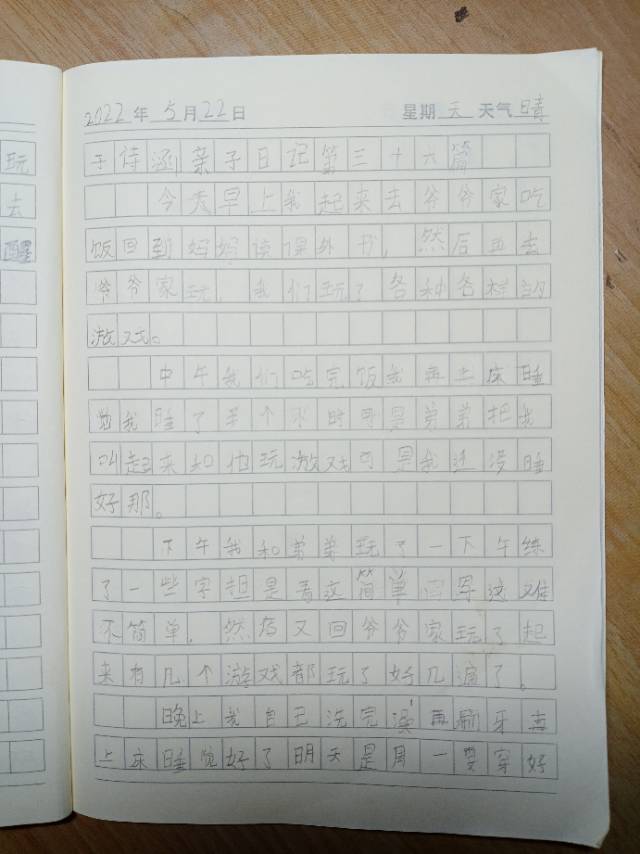 2022年5月22日 星期天 天气晴
于诗涵亲子日记第三十六篇
今天早上我起来去爷爷家吃
饭回到妈妈读课外书，然后再去
爷爷家玩，我们玩了各种各样的
游戏。
中午我们吃完饭我再上床睡
觉我睡了半个小时可是弟弟把我
叫起来和他玩游戏可是我还没睡
好那。
下午我和弟弟玩了一下午练
了一些字担是看这简单写这难
不简单，然后又回爷爷家玩了起
来有几个游戏都玩了好几遍了。
晚上我自己洗完澡再刷牙直
上床睡觉好了明天是周一要穿好
玩
去
醒